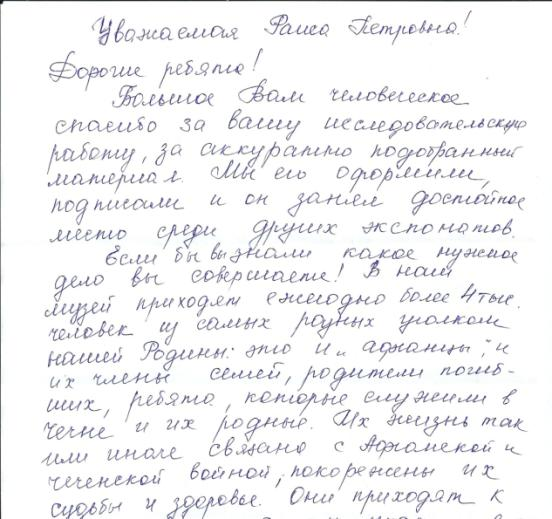 Уважаемая Раиса Петровна!
Дорогие ребята!
Большое Вам человеческое
спасибо за вашу исследовательскую
работу, за аккуратно подобранный
материал. Мы его оформили,
подписали и он занял достойное
место среди других экспонатов.
Если бы вы знали какое нужное
дело вы совершаете! В наш
музей приходят ежегодно более 4 тыс.
человек из самых разных уголков
нашей Родины: это и „афганцы", и
их члены семей, родители погиб-
ших, ребята, которые служили в
Чечне и их родные. Их жизнь так
или иначе связана с Афганской и
чеченской войной, покорежены их
судьбы и здоровье. Они приходят к